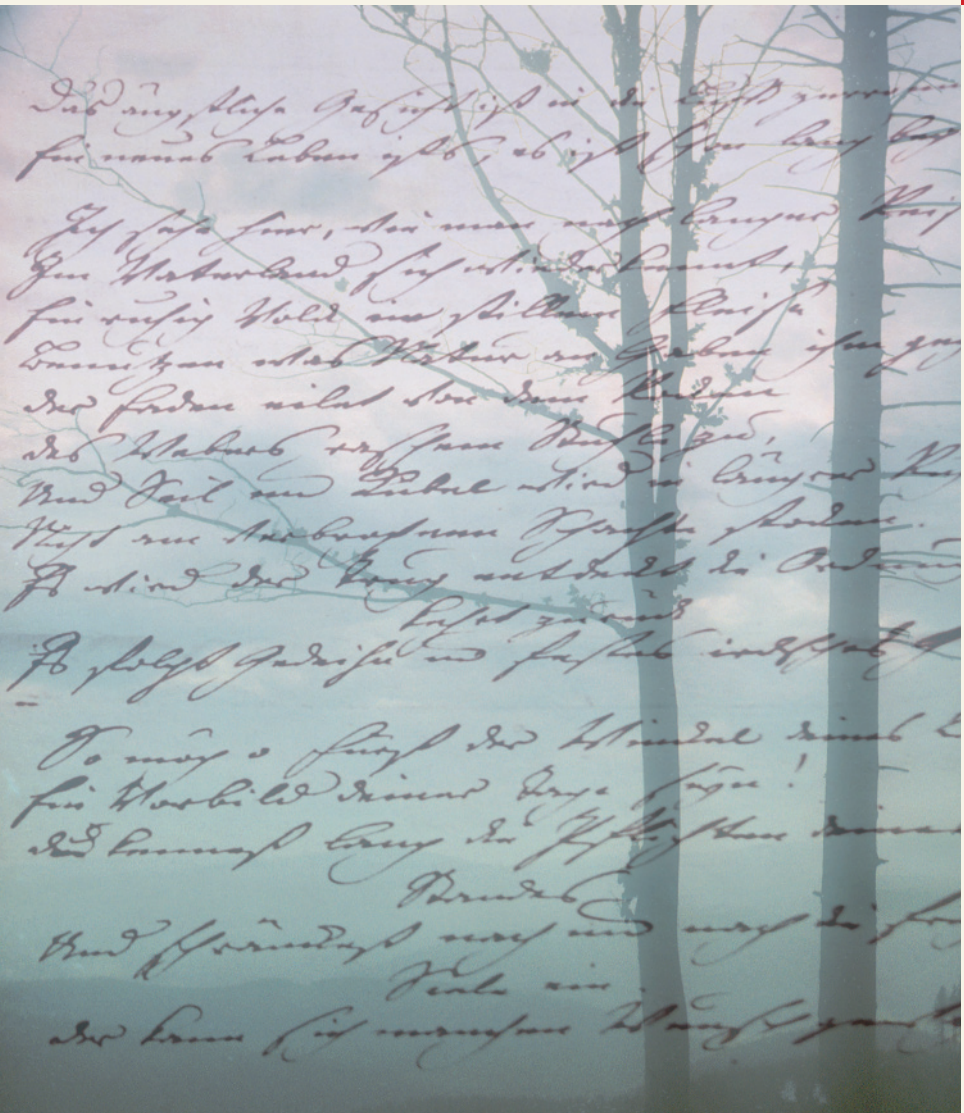 Das ängstliche Gesicht ist in die Luft
Ein neues Leben ists, es ist schon lang
Ich sehe hier, wie man nach langer
Im Vaterland sich wieder kennt,
Ein ruhig Volk in stillem Fleiße
Benutzen was Natur an Gaben ihm
der Faden eilet von dem Rocken
des Webers raschem Stuhle zu,
Und Seil und Kübel wird in längrer
Nicht am verbrochnen Schachte stocken.
Es wird der Trug entdeckt die
kehrt zurück
Es folgt Gedeihn und festes irdsches
So mög o Fürst der Winkel deines
Ein Vorbild deiner Tage seyn!
du kennest lang die Pflichten
Standes
Und schränkest nach und nach die
Seele ein.
der kann sich manchen Wunsch